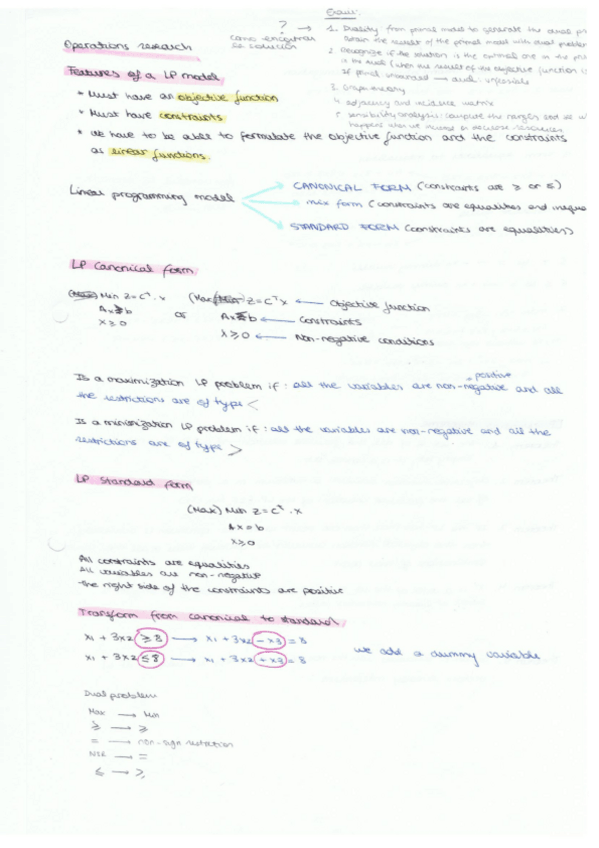 Exam:
? →
como encontrar
se solución
1. Duality from primal model to generate the dual pr
obtain the result of the primal model with dual problem
2. Recognize if the solution is the optimal one in the pri
is the dual (when the result of the objective function is
If primal unbounded → dual: infeasible
3. Graph theory
4. adjacency and incidence matrix
5. sensibility analysis: complete the ranges and see w
happens when we increase or decrease resources
Operations research
Features of a LP model
* Must have an objective function
* Must have constraints
* We have to be able to formulate the objective function and the constraints
as linear functions.
Linear programming model
CANONICAL FORM (constraints are ≥ or ≤)
mix form (constraints are equalities and inequa
STANDARD FORM (constraints are equalities)
LP canonical form
Min Z = Cᵀ · x (Max) Z = Cᵀ x ← Objective function
Ax ≥ b or Ax ≤ b ← Constraints
X ≥ 0 X ≥ 0 ← Non-negative conditions
= positive
Is a maximization LP problem if: all the variables are non-negative and all
the restrictions are of type <
Is a minimization LP problem if: all the variables are non-negative and all the
restrictions are of type >
LP standard form
(Max) Min Z = Cᵀ · x
Ax = b
X ≥ 0
All constraints are equalities
All variables are non-negative
The right side of the constraints are positive
Transform from canonical to standard
x1 + 3x2 ≥ 8 → x1 + 3x2 - x3 = 8
x1 + 3x2 ≤ 8 → x1 + 3x2 + x3 = 8
we add a dummy variable
Dual problem
Max → Min
≥ → ≥
= → non-sign restriction
NSR → =
≤ → ≥